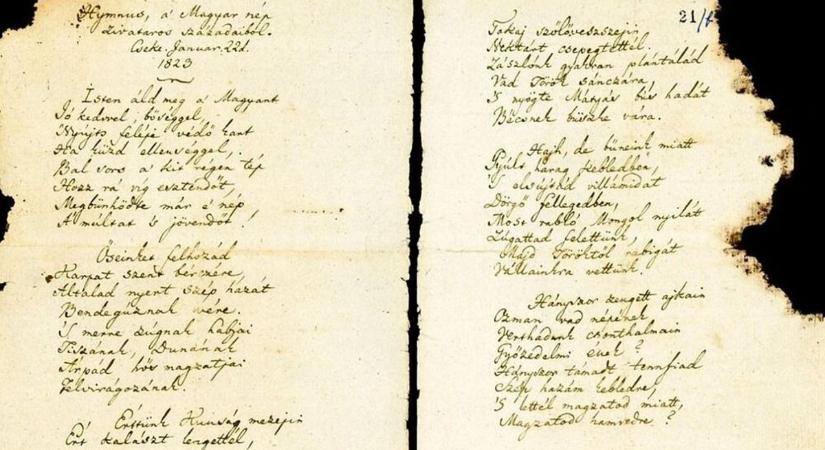 Hymnus, a' Magyar nép
zivataros századaiból.
Cseke. Januar. 22d.
1823
Isten áldd meg a' Magyart
Jó kedvvel, bőséggel,
Nyújts feléje védő kart
Ha küzd ellenséggel,
Bal sors a' kit régen tép
Hozz rá víg esztendőt,
Megbűnhődte már e' nép
A' múltat 's jövendőt!
Őseinket felhozád
Kárpát szent bérczére,
Általad nyert szép hazát
Bendegúznak vére.
'S merre zúgnak habjai
Tiszának, Dunának
Árpád hős magzatjai
Felvirágozának.
Értünk Kunság mezején
Ért kalászt lengettél,
21/1
Tokaj szőlővesszein
Nektárt csepegtettél.
Zászlónk gyakran plántálád
Vad Török sánczára,
'S nyögte Mátyás bús hadát
Bécsnek büszke vára.
Hajh, de bűneink miatt
Gyúlt harag kebledben,
'S elsújtád villámidat
Dörgő fellegedben,
Most rabló Mongol nyilát
Zúgattad felettünk,
Majd Töröktől rabigát
Vállainkra vettünk.
Hányszor zengett ajkain
Ozman vad népének
Vert hadunk csonthalmain
Győzedelmi ének?
Hányszor támadt tenn fiad
Szép hazám kebledre,
'S lettél magzatod miatt,
Magzatod hamvedre?